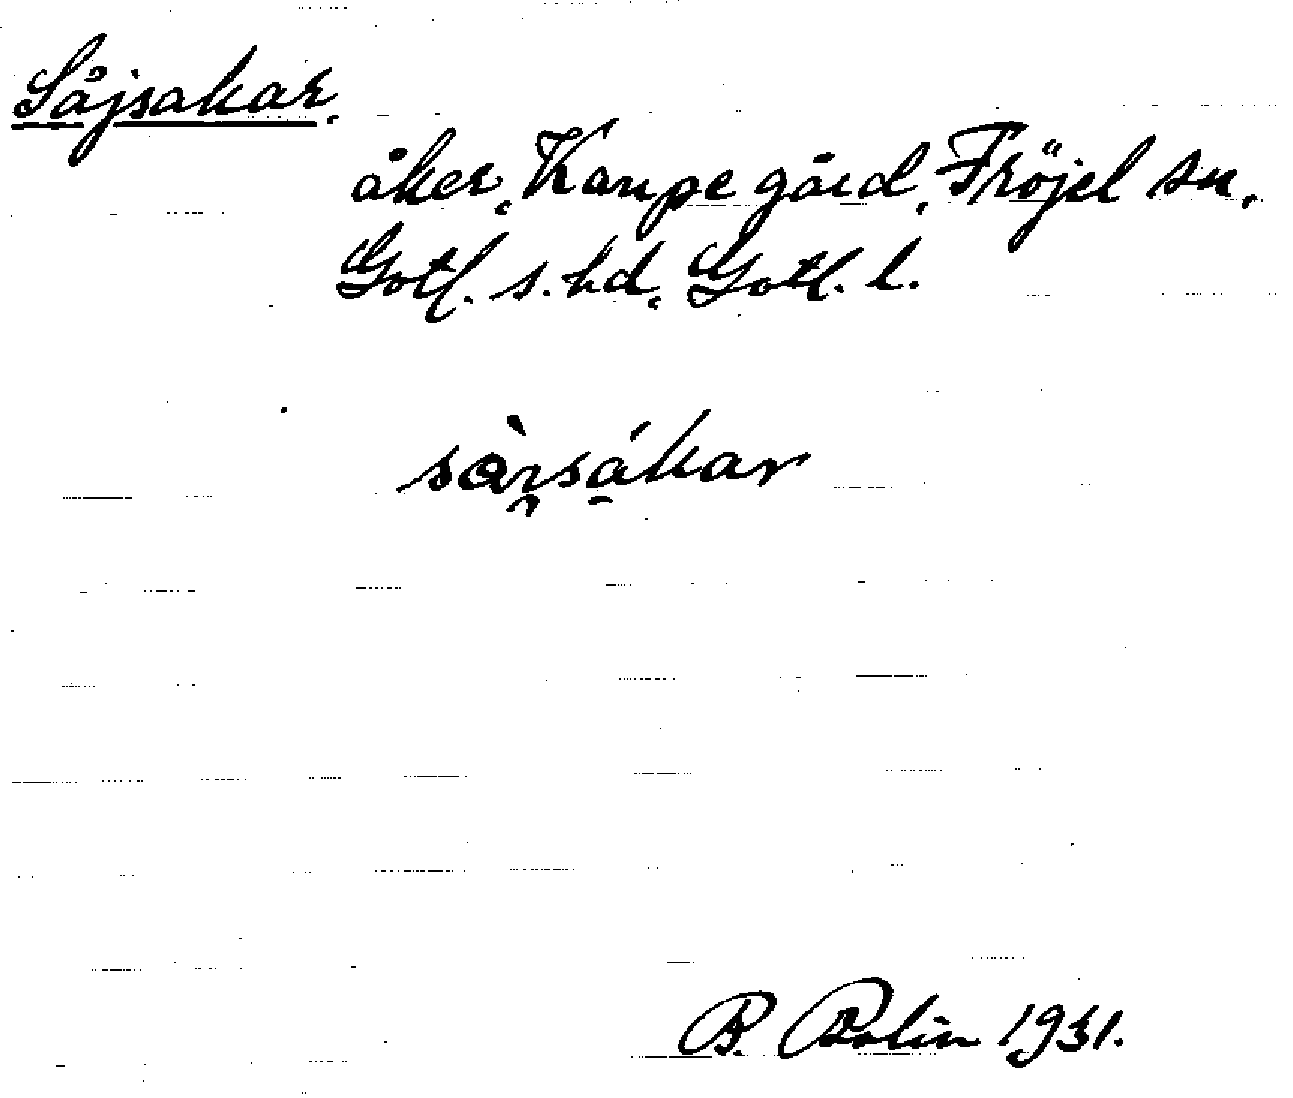 Såjsakar.
åker, Kaupe gård, Fröjel sn,
Gotl. s. hd, Gotl. l.
B. Bolin 1931.